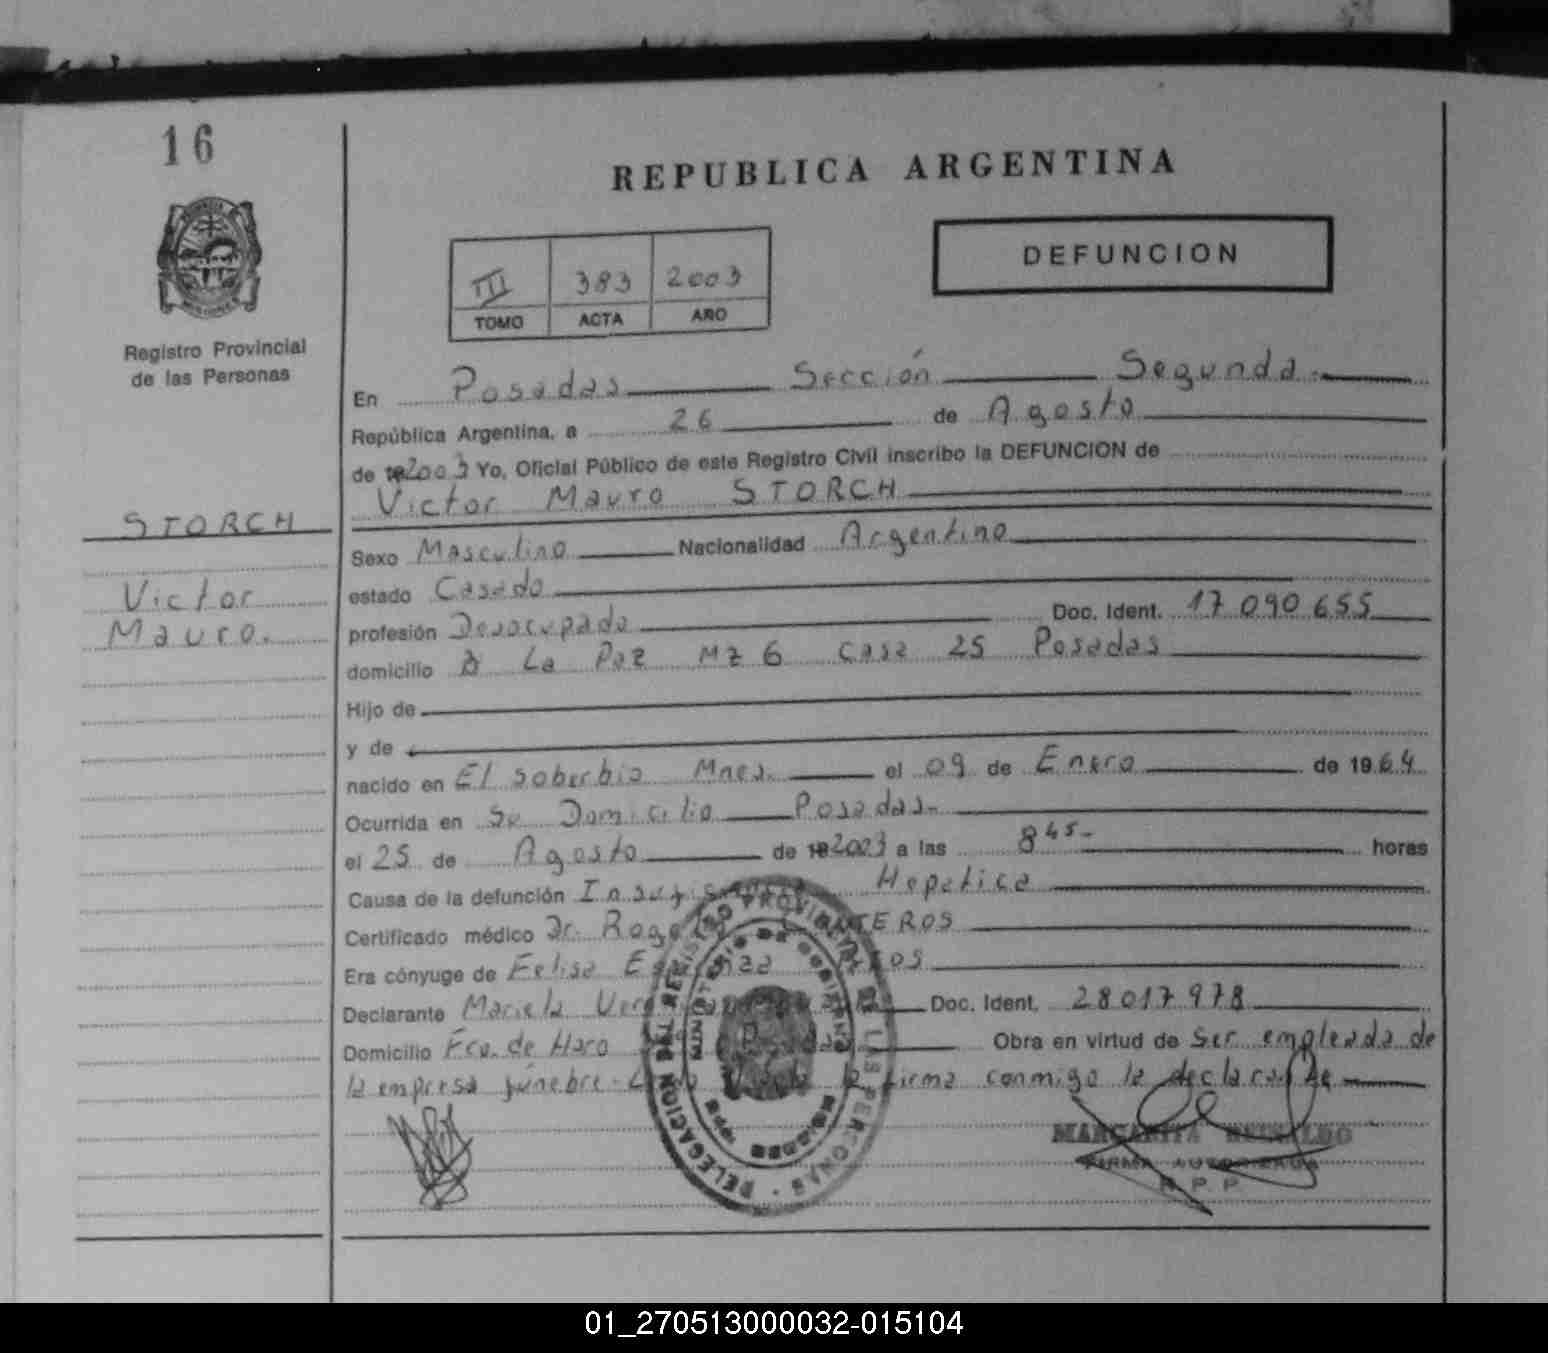 16
REPUBLICA ARGENTINA
DEFUNCION
III 383 2003
TOMO ACTA AÑO
Registro Provincial
de las Personas
En Posadas Sección Segunda.
República Argentina, a 26 de Agosto
de 2003 Yo, Oficial Público de este Registro Civil inscribo la DEFUNCION de
Victor Mauro STORCH
STORCH
Victor
Mauro.
Sexo Masculino Nacionalidad Argentino
estado Casado
profesión Desocupado Doc. Ident. 17 090 655
domicilio La Paz Mz 6 Casa 25 Posadas
Hijo de
y de
nacido en El Soberbio Mnes. el 09 de Enero de 1964
Ocurrida en Su Domicilio Posadas-
el 25 de Agosto de 2003 a las 8 45- horas
Causa de la defunción Hepatica
Certificado médico Dr.
Era cónyuge de Felisa
Declarante Mariela Doc. Ident. 28017978
Domicilio Fco. de Haro Obra en virtud de Ser empleada de
la empresa fúnebre- firma conmigo la declarante
MARGARITA
FIRMA AUTORIZADA
R. P. P.
DELEGACION DEL REGISTRO PROVINCIAL DE LAS PERSONAS
MINISTERIO DE GOBIERNO
01_270513000032-015104